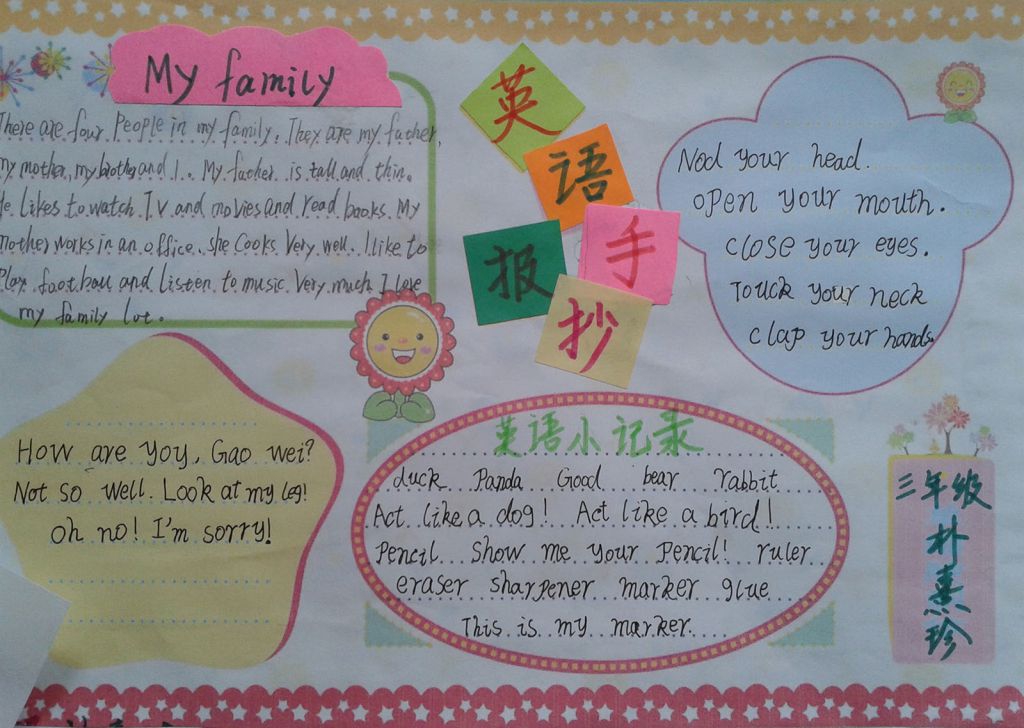 My family
There are four People in my family. They are my father,
my mother, my brother and I.. My father is tall and thin.
He likes to watch TV and movies and read books. My
mother works in an office. she cooks Very well. I like to
Play football and Listen to music Very much I love
my family Lot.
英
语
手
抄
报
Nod your head.
open your mouth.
close your eyes.
Touck your neck
clap your hands.
How are you, Gao wei?
Not so well. Look at my leg!
oh no! I'm sorry!
英语小记录
duck Panda Good bear rabbit
Act like a dog! Act like a bird!
Pencil Show me your Pencil! ruler
eraser sharpener marker glue
This is my marker.
三年级
朴
熹
珍